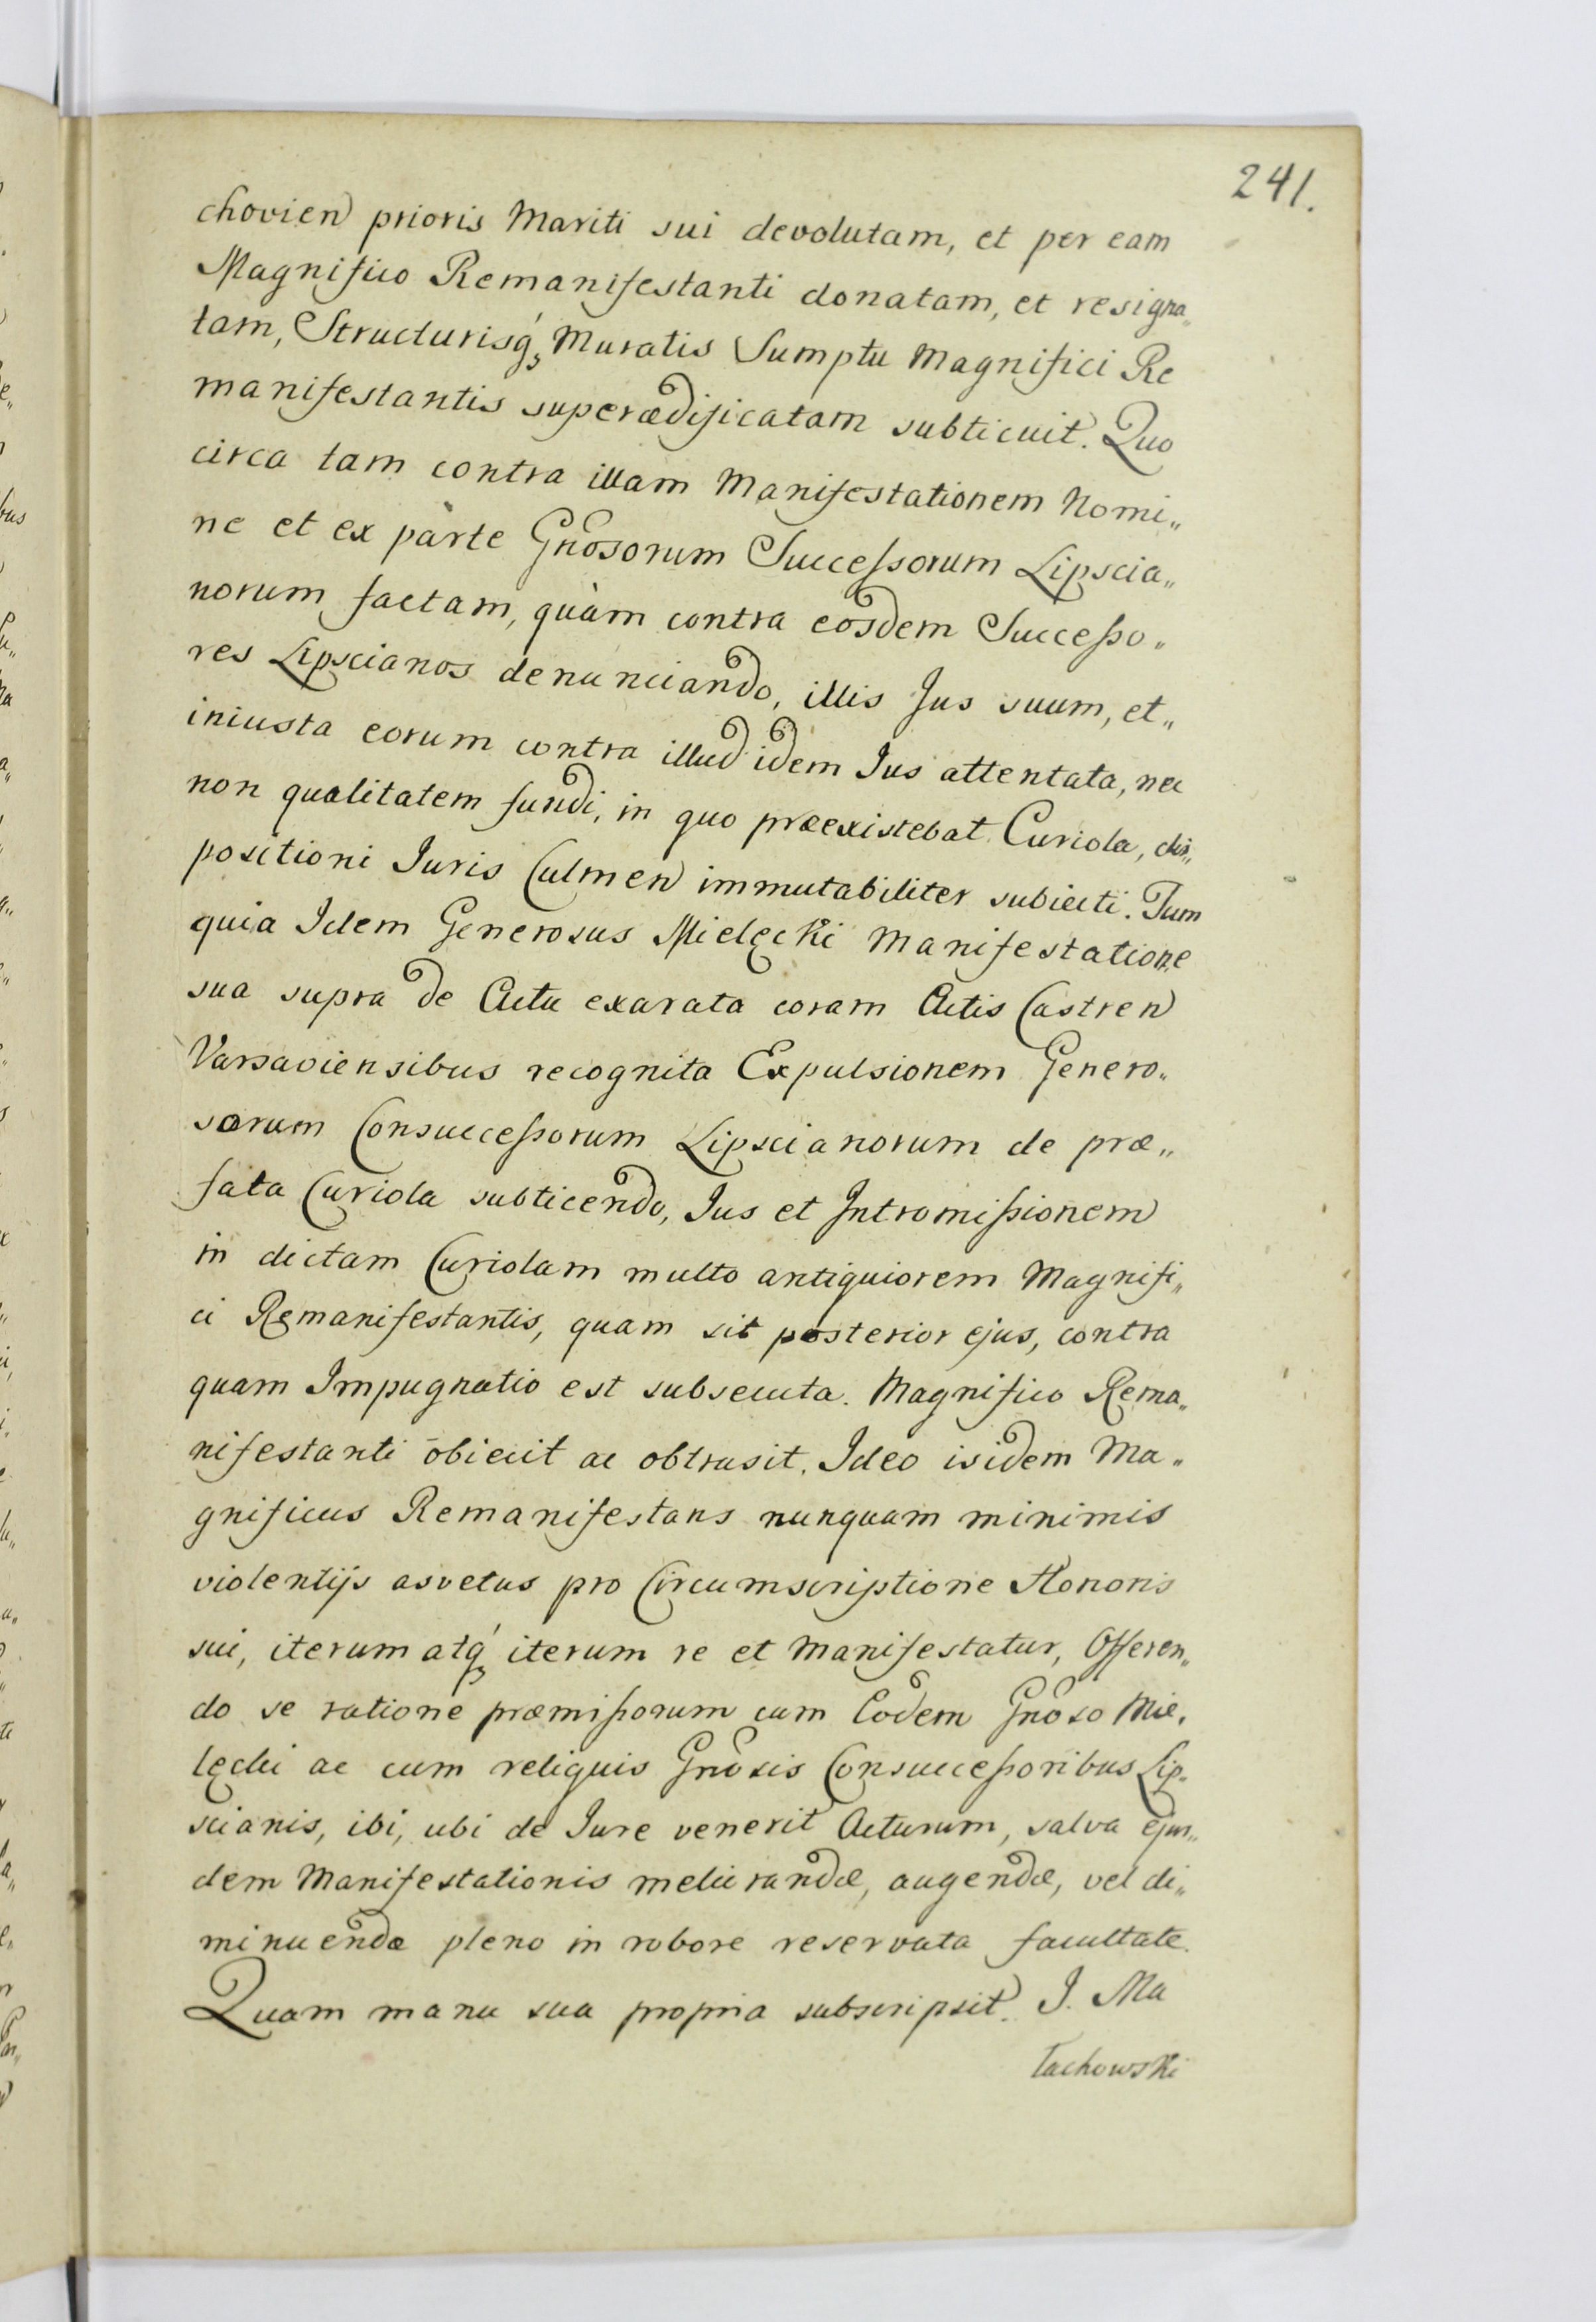 241.
chovien prioris Mariti sui devolutam, et per eam
Magnifico Remanifestanti donatam, et resigna„
tam, Structurisq́; Muratis Sumptu Magnifici Re
manifestantis superædificatam subticuit. Quo
circa tam contra illam Manifestationem Nomi„
ne et ex parte Gnosorum Successorum Lipscia„
norum factam, quàm contra eosdem Successo„
res Lipscianos denunciando, illis Jus suum, et„
iniusta eorum contra illud idem Ius attentata, nec
non qualitatem fundi, in quo præexistebat Curiola, dis„
positioni Iuris Culmen immutabiliter subiecti. Tum
quia Idem Generosus Mielęcki Manifestatione
sua supra de Actu exarata coram Actis Castren
Varsaviensibus recognita Expulsionem Genero„
sorum Consuccessorum Lipscianorum de præ„
fata Curiola subticendo, Jus et Intromissionem
in dictam Curiolam multo antiquiorem Magnifi„
ci Remanifestantis, quam sit posterior ejus, contra
quam Impugnatio est subsecuta. Magnifico Rema„
nifestanti obiecit ac obtrusit. Ideo isidem Ma„
gnificus Remanifestans nunquam minimis
violentijs asvetus pro Circumscriptione Honoris
sui, iterum atq́; iterum re et Manifestatur, Offeren„
do se ratione præmissorum cum Eodem Gnoso Mie„
lęcki ac cum reliquis Gnosis Consuccessoribus Lip„
scianis, ibi, ubi de Jure venerit Acturum, salva ejus„
dem Manifestationis meliorandæ, augendæ, vel di„
minuendæ pleno in robore reservata facultate.
Quam manu sua propria subscripsit. J. Ma
łachowski